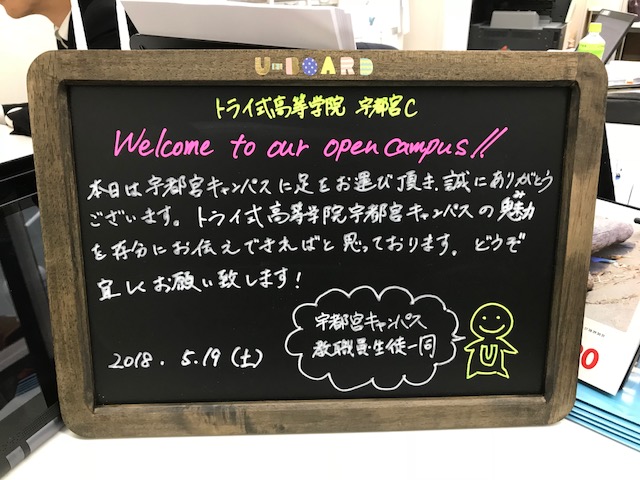 U-BOARD
トライ式高等学院 宇都宮C
Welcome to our open campus!!
本日は宇都宮キャンパスに足をお運び頂き、誠にありがとう
ございます。トライ式高等学院宇都宮キャンパスの魅力
を存分にお伝えできればと思っております。どうぞ
宜しくお願い致します!
宇都宮キャンパス
教職員・生徒一同
U
2018. 5.19(土)